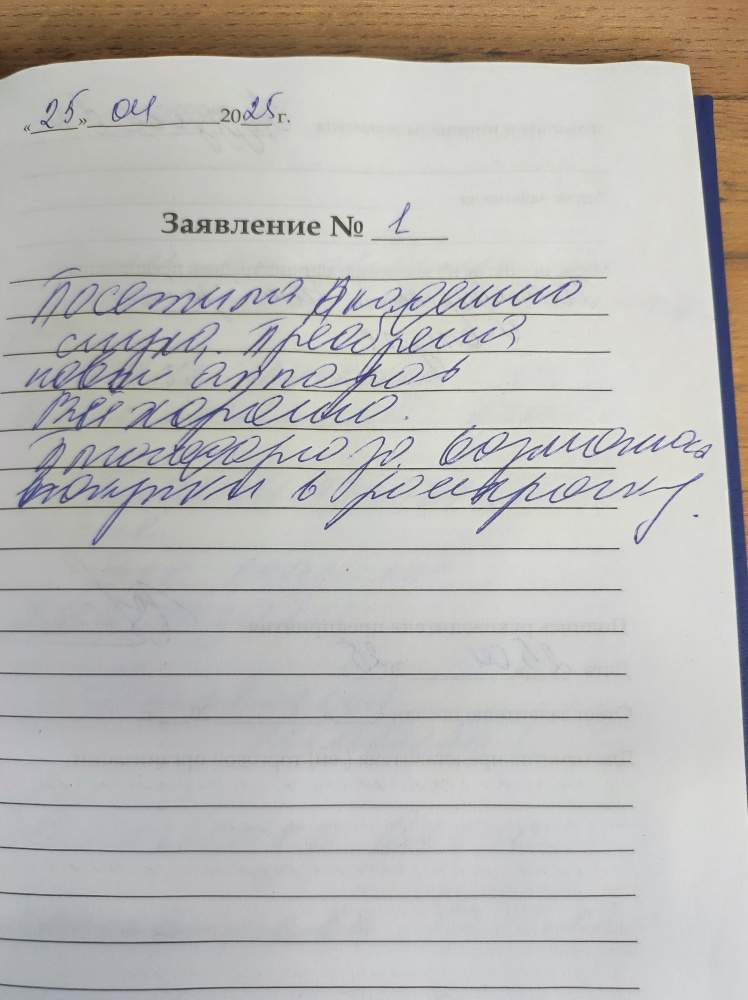 «25» 04 2025 г.
Заявление № 1
Посетила Академию
слуха. Преобрела
новый аппарат
Всё хорошо.
Благодарю за
покупки в рассрочку.